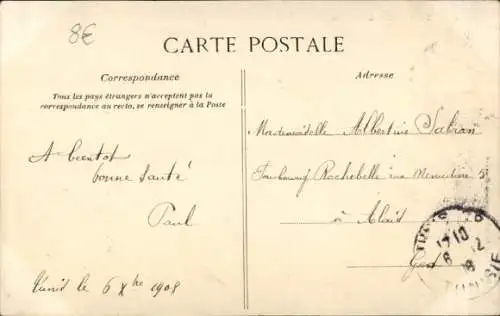 8€
CARTE POSTALE
Correspondance
Tous les pays étrangers n'acceptent pas la
correspondance au recto, se renseigner à la Poste
A bientot
bonne santé
Paul
Tunis le 6 Xbre 1908
Adresse
Mademoiselle Albertine Sabran
Faubourg Rochebelle rue
à Alais
Gard
TUNIS
TUNISIE